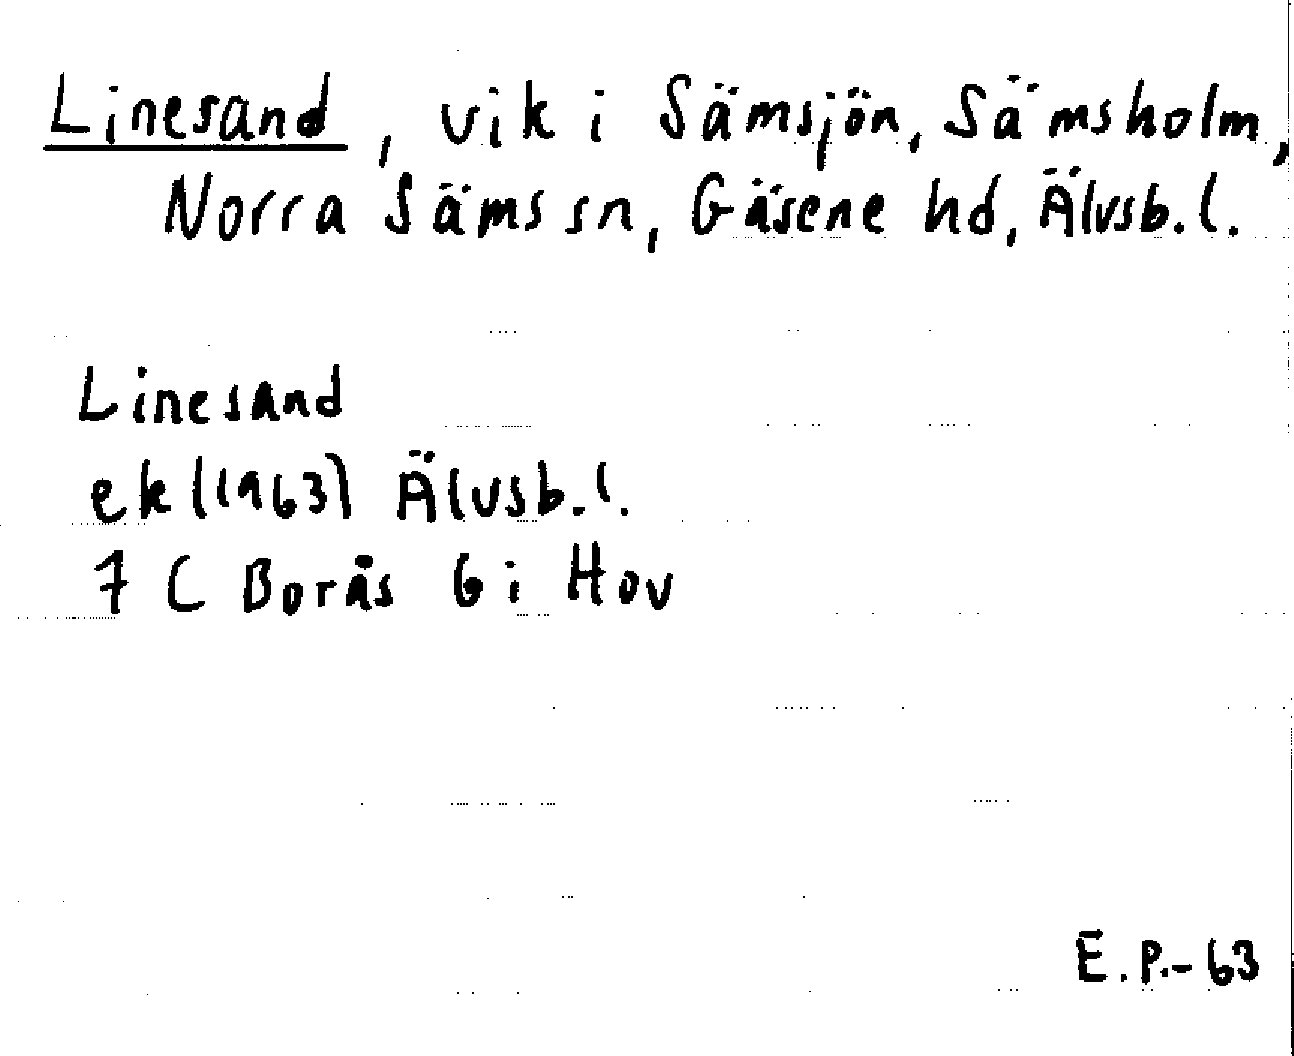 Linesand, vik i Sämsjön, Sämsholm,
Norra Säms sn, Gäsene hd, Älvsb. l.
Linesand
ek (1963) Älvsb. l.
7 C Borås 6 i Hov
E.P.-63